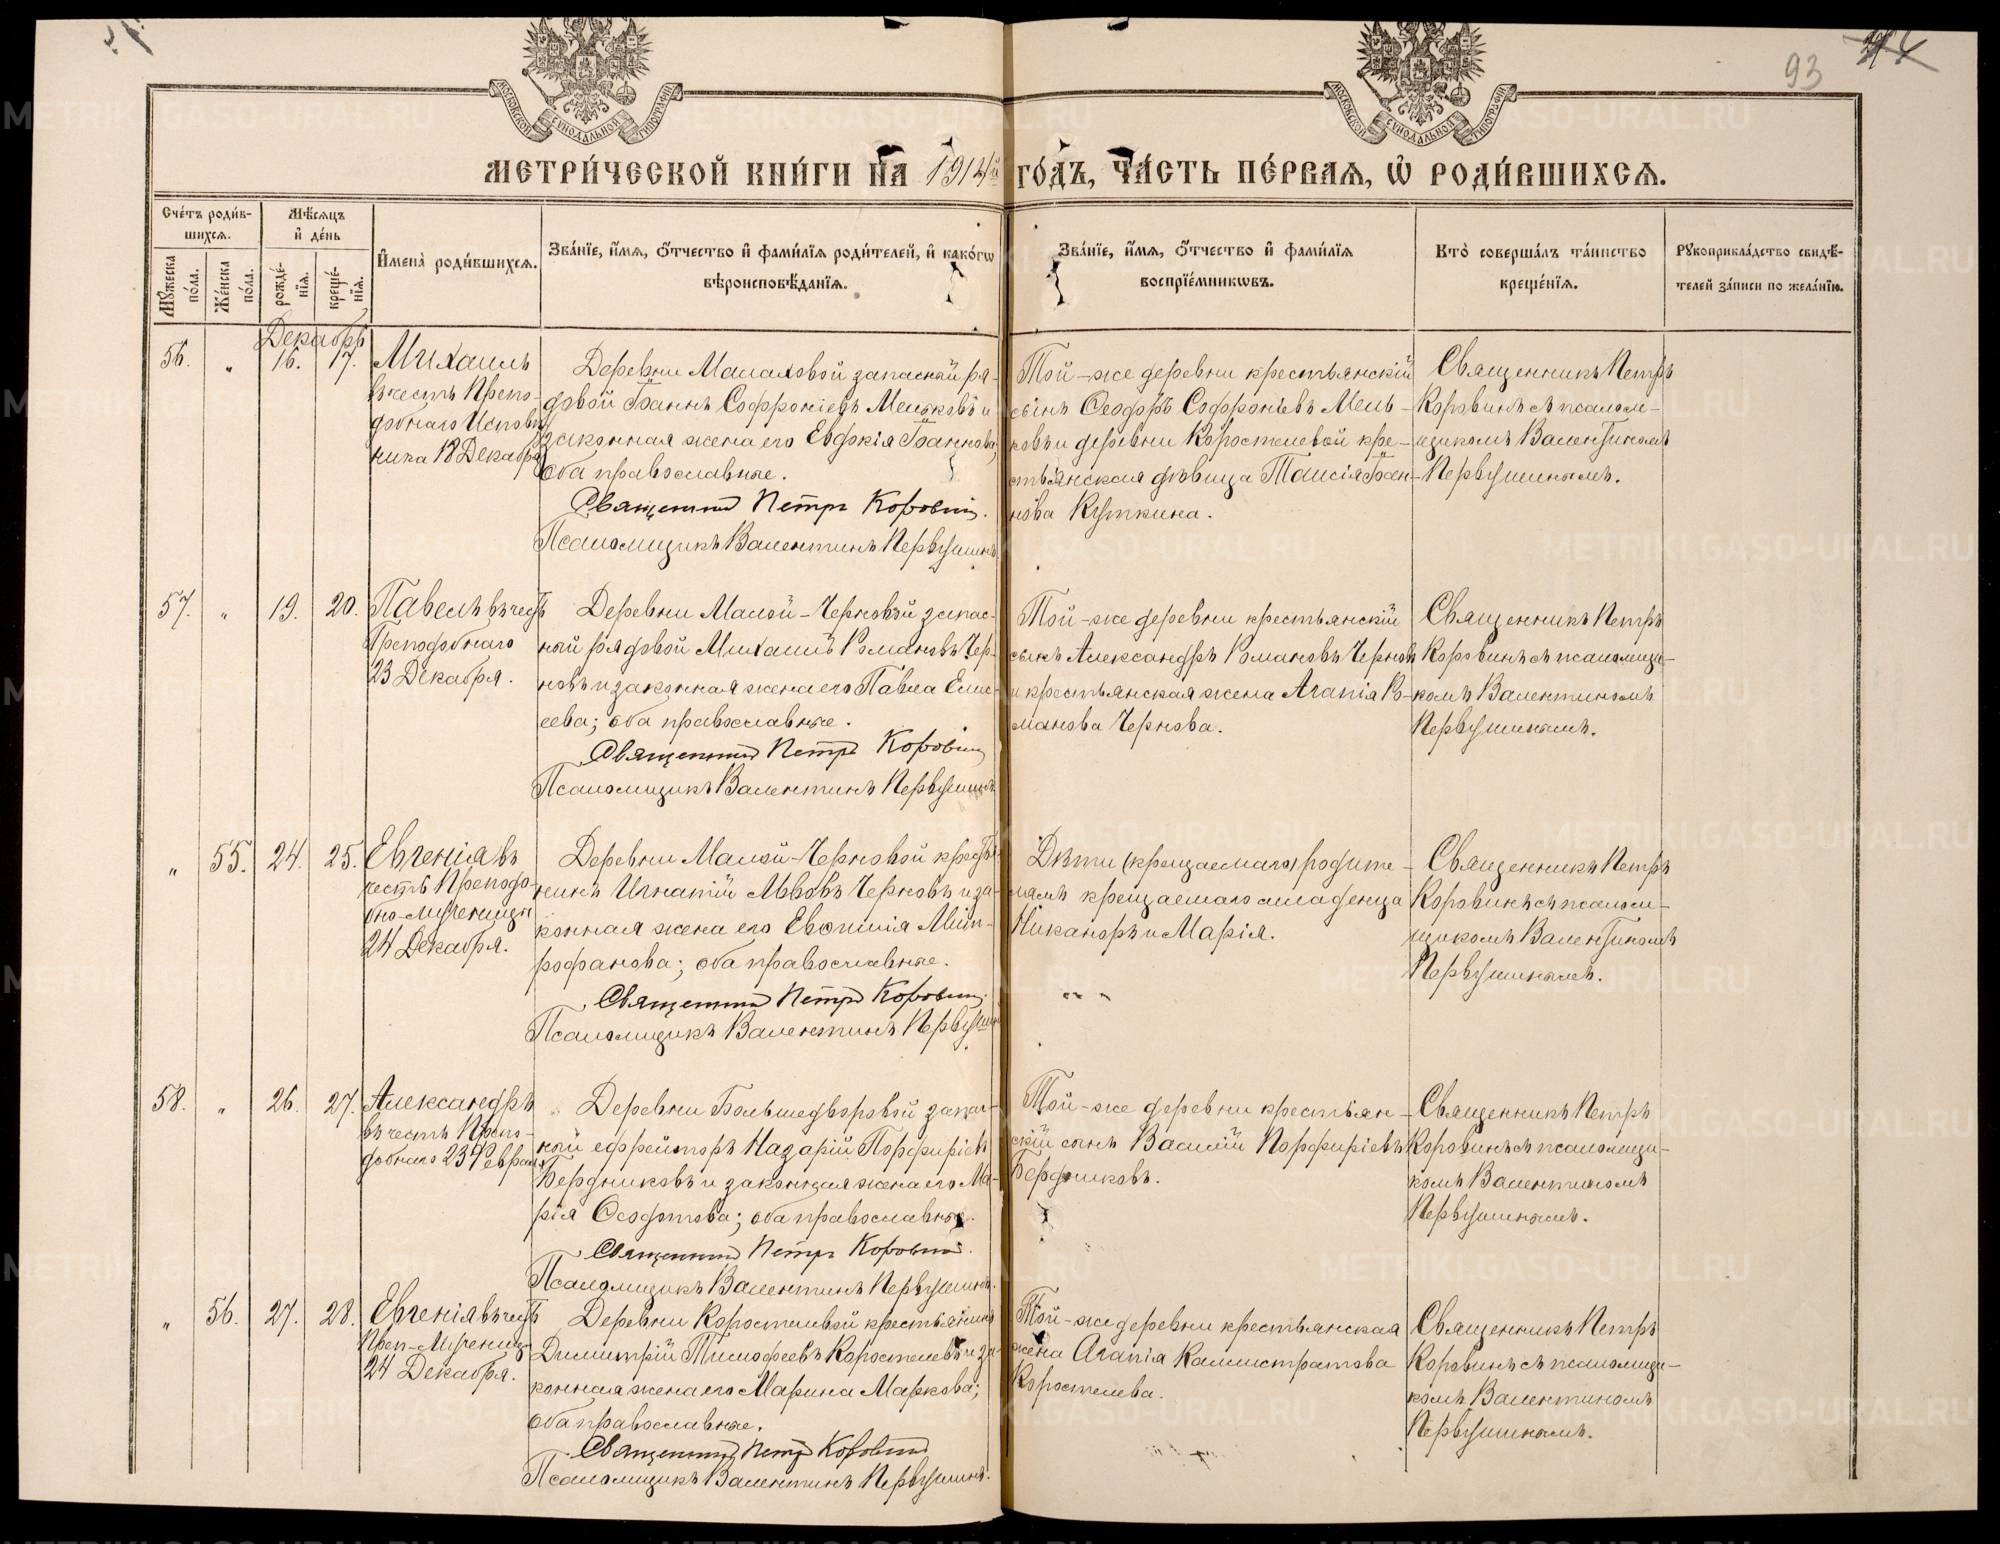 93
МЕТРИ́ЧЕСКОЙ КНИ́ГИ НА 1914й ГО́ДЪ, ЧА́СТЬ ПЕ́РВАЯ, Ѡ РОДИ́ВШИХСЯ.
Сче́тъ роди́вшихся.
Му́жеска по́ла.
Же́нска по́ла.
Мѣ́сяцъ и де́нь
рожде́нїя.
креще́нїя.
Имена̀ роди́вшихся.
Зва́нїе, и́мя, ѻ́тчество и фами́лїя роди́телей, и како́гѡ
вѣроисповѣ́данїя.
Зва́нїе, и́мя, ѻ́тчество и фами́лїя
воспрїе́мникѡвъ.
Кто̀ соверша́лъ та́инство
креще́нїя.
Рукоприкла́дство свидѣ́-
телей за́писи по жела́нїю.
Декабрь
56. " 16. 17.
Михаилъ
въ честь Препо-
добнаго Исповѣд
ника 18 Декабря
Деревни Малаховой запасный ря-
довой Іоаннъ Софроніевъ Меньковъ и
законная жена его Евдокія Іоаннова;
оба православные.
Священник Петръ Коровин.
Псаломщикъ Валентинъ Первушинъ
Той-же деревни крестьянскій
сынъ Ѳеодоръ Софроніевъ Мень-
ковъ и деревни Коростелевой кре-
стьянская дѣвица Таисія Іоан-
нова Куткина.
Священникъ Петръ
Коровинъ съ псалом-
щикомъ Валентиномъ
Первушинымъ.
57. " 19. 20.
Павелъ въ честь
Преподобнаго
23 Декабря.
Деревни Малой-Черновой запас-
ный рядовой Михаилъ Романовъ Чер-
новъ и законная жена его Павла Елис
еева; оба православные.
Священник Петръ Коровин
Псаломщикъ Валентинъ Первушинъ
Той-же деревни крестьянскій
сынъ Александръ Романовъ Чернов
и крестьянская жена Агапія Ро-
манова Чернова.
Священникъ Петръ
Коровинъ съ псаломщи-
комъ Валентиномъ
Первушинымъ.
" 55. 24. 25.
Евгенія въ
честь Преподо-
бно-мученицы
24 Декабря.
Деревни Малой-Черновой крестья
нинъ Игнатій Львовъ Черновъ и за-
конная жена его Евѳимія Мит-
рофанова; оба православные.
Священник Петръ Коровин
Псаломщикъ Валентинъ Первушин
Дѣти (крещаемаго) родите-
лямъ крещаемаго младенца
Никаноръ и Марія.
Священникъ Петръ
Коровинъ съ псалом-
щикомъ Валентиномъ
Первушинымъ.
58. " 26. 27.
Александръ
въ честь Препо-
добнаго 23 Феврал
Деревни Большедворовой запас-
ный ефрейторъ Назарій Порфирьевъ
Бердниковъ и законная жена его Ма-
рія Ѳеодотова; оба православные.
Священник Петръ Коровин.
Псаломщикъ Валентинъ Первушинъ.
Той-же деревни крестьян-
скій сынъ Василій Порфиріевъ
Бердниковъ.
Священникъ Петръ
Коровинъ съ псаломщи-
комъ Валентиномъ
Первушинымъ.
" 56. 27. 28.
Евгенія въ честь
Преп-Мученицы
24 Декабря.
Деревни Коростелевой крестьянинъ
Димитрій Тимофеевъ Коростелевъ и за-
конная жена его Марина Маркова;
оба православные.
Священник Петр Коровин
Псаломщикъ Валентинъ Первушинъ.
Той-же деревни крестьянская
жена Агапія Каллистратова
Коростелева.
Священникъ Петръ
Коровинъ съ псаломщи-
комъ Валентиномъ
Первушинымъ.
METRIKI.GASO-URAL.RU